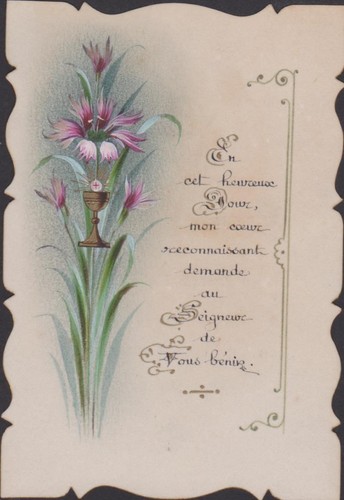 En
cet heureux
Jour,
mon cœur
reconnaissant
demande
au
Seigneur
de
Vous bénir.